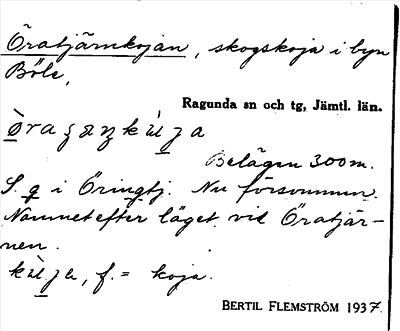 Öratjärnkojan, skogskoja i byn
Böle,
Ragunda sn och tg, Jämtl. län.
Belägen 300 m.
S. q i Öringtj. Nu försvunnen.
Namnet efter läget vid Öratjär-
nen.
f. = koja.
BERTIL FLEMSTRÖM 1937.